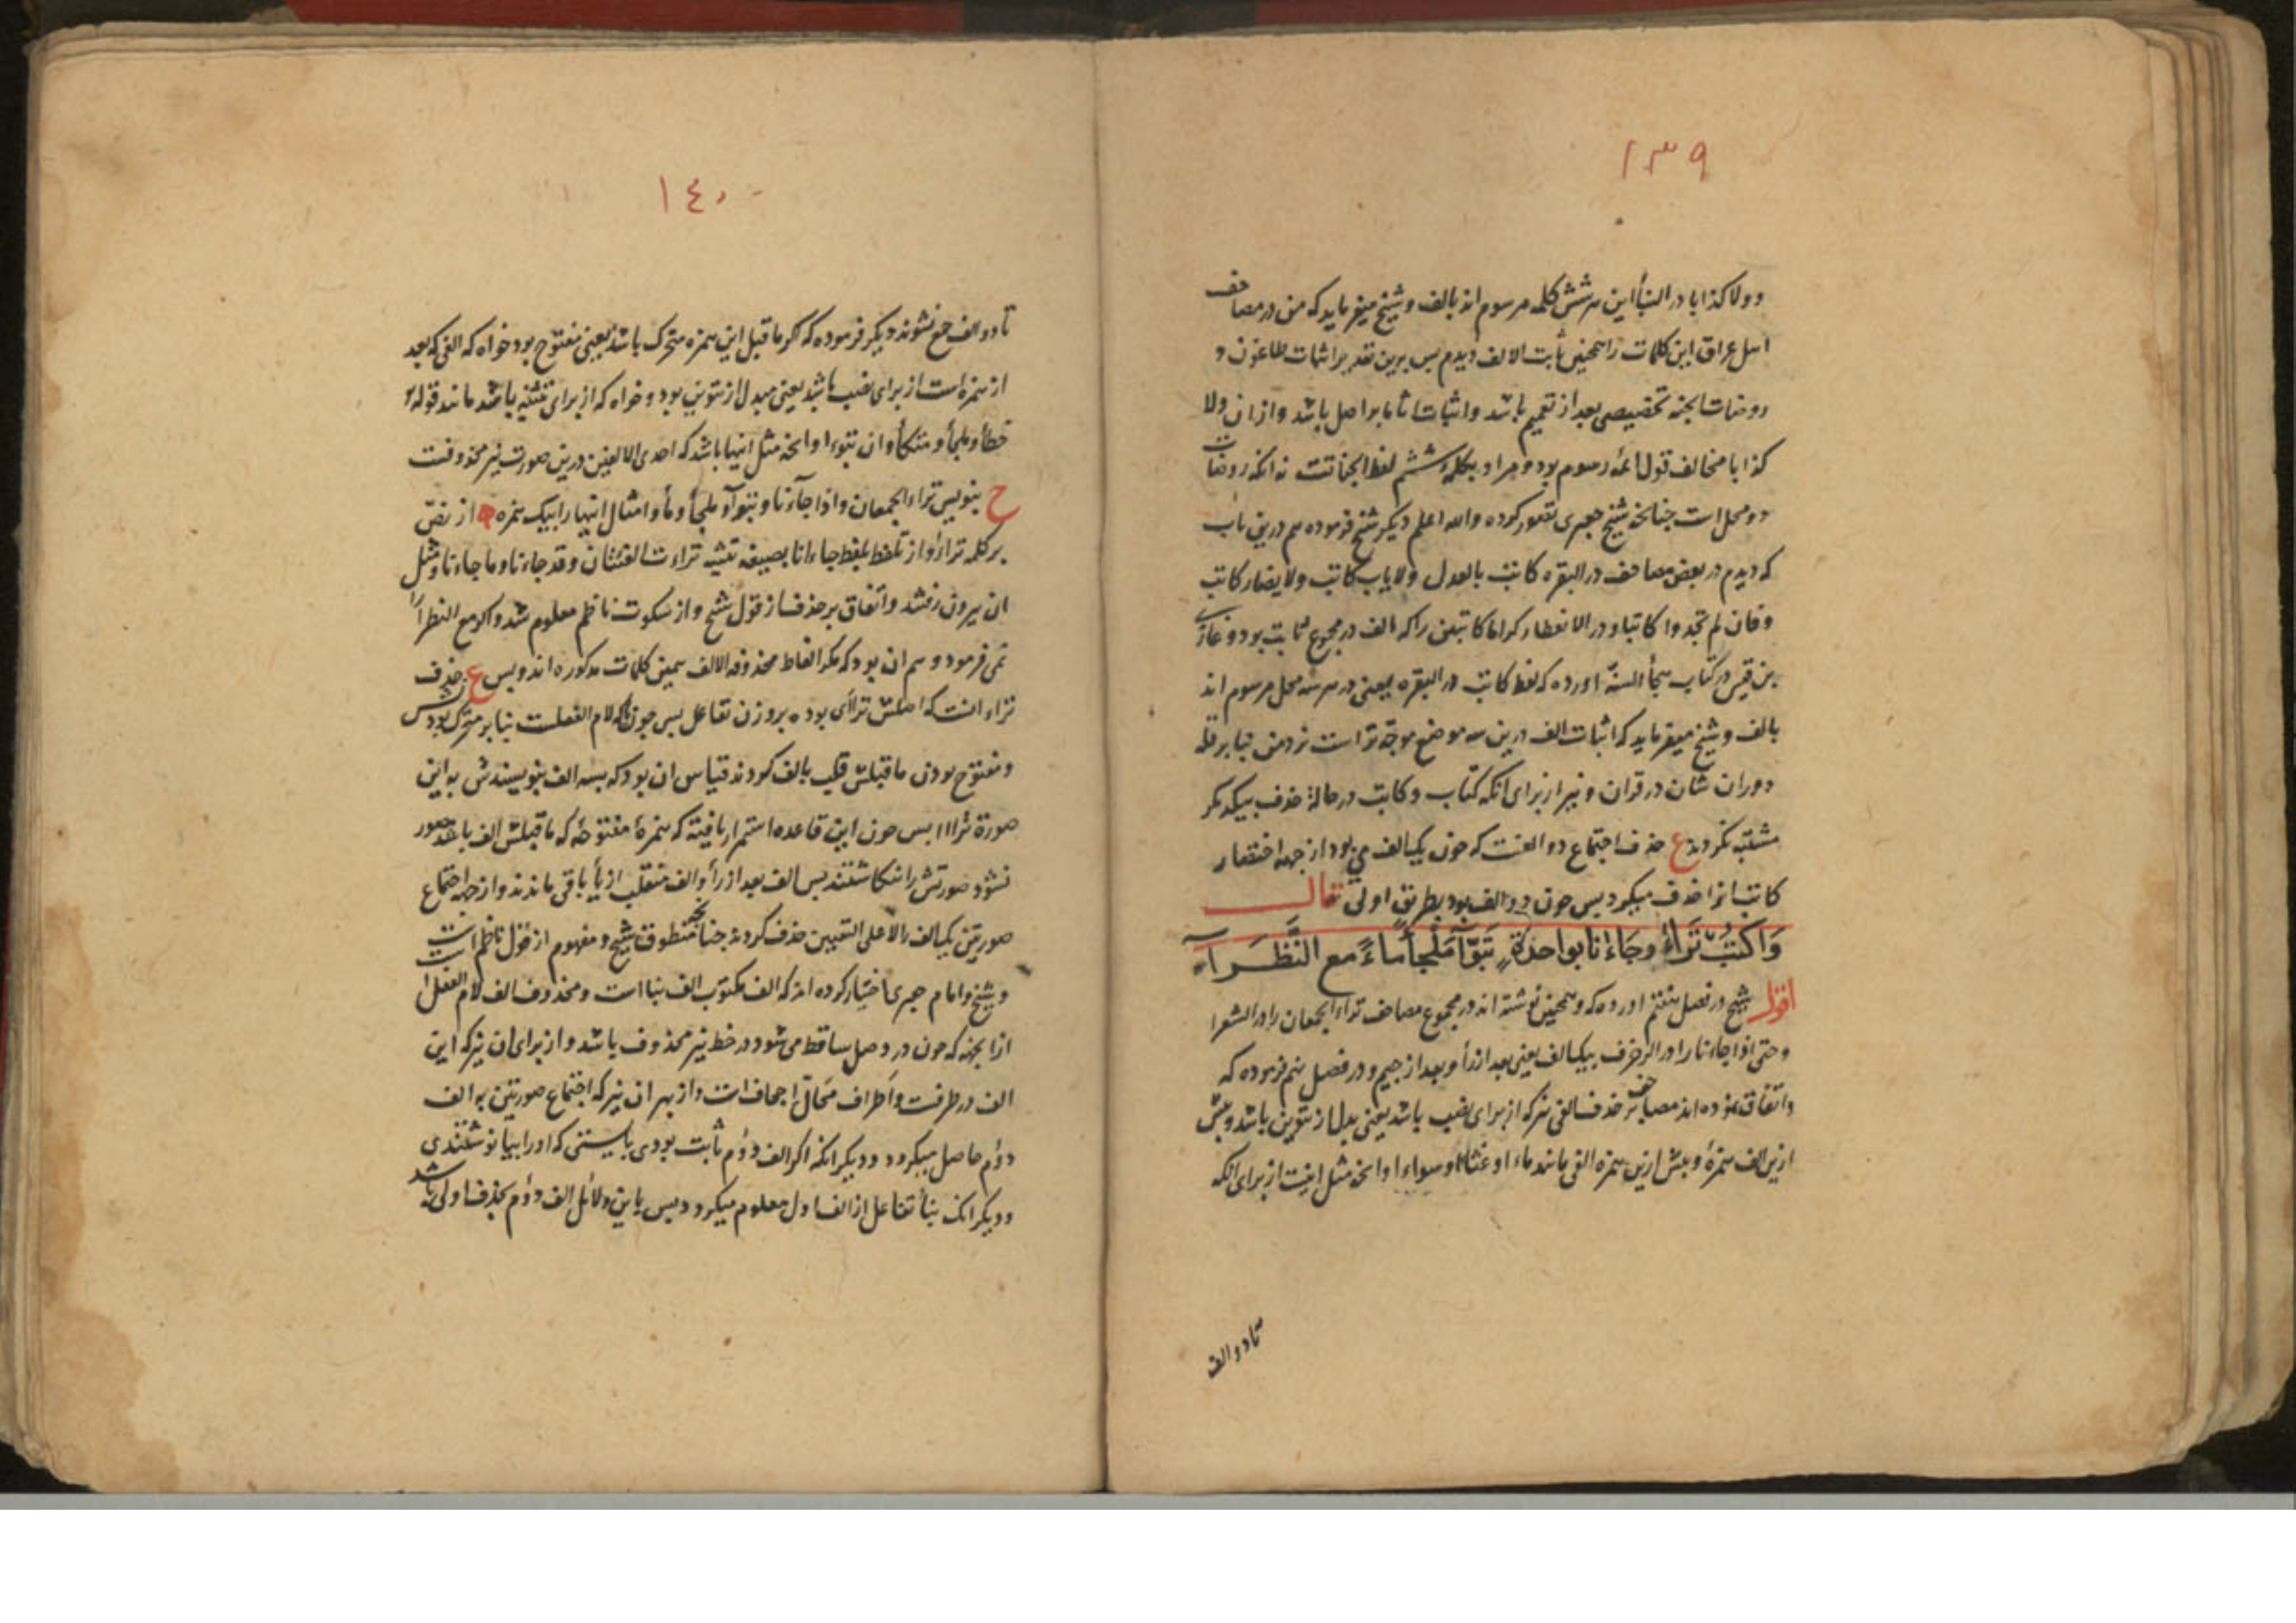 ١٣٩
وولا کذابا در النبأ این هر شش کلمه مرسوم اند بالف و شیخ میفرماید که من در مصاحف
اهل عراق این کلمات را همچنین ثابت الالف دیدم پس برین تقدیر اثبات طاغون و
روضات الجنه تخصیصی بعد از تعمیم باشد و اثبات اثابا بر اصل باشد و از ان ولا
کذابا مخالف قول ائمه رسوم بود و مراد بکلمه ششم لفظ الجناتست نه انکه روضات
دو محل است چنانچه شیخ جعبری تصور کرده والله اعلم دیکر شیخ فرموده هم درین باب
که دیدم در بعض مصاحف در البقره کاتب بالعدل ولا یاب کاتب ولا یضار کاتب
وفان لم تجدوا کاتبا و در الانفطار کراما کاتبین را که الف در مجموع ثابت بود و غازی
بن قیس در کتاب هجأ السنة اورده که لفظ کاتب در البقره یعنی در هر سه محل مرسوم اند
بالف و شیخ میفرماید که اثبات الف درین سه موضع موجه تر است نزد من بنا بر قلة
دوران شان در قران و نیز از برای انکه کتاب و کاتب در حالة حذف بیکدیکر
مشتبه نکردند ع حذف اجتماع دو الفست که چون یک الف می بود از جهة اختصار
کاتب انرا حذف میکرد پس چون دو الف بود بطریق اولی قال
وَاکْتُبْ تَرَاءَ وجَاءَنا بواحدَةٍ تَبَوَّآ مَلْجَأً مَاءً مع النَّظَرَا
اقول شیخ در فصل هفتم اورده که و همچنین نوشته اند در مجموع مصاحف تراء الجمعان را در الشعرا
وحتی اذا جاءنا را در الزخرف بیک الف یعنی بعد از رأ و بعد از جیم و در فصل نهم فرموده که
واتفاق نموده اند مصاحف بر حذف الفی نیز که از برای نصب باشد یعنی بدل از تنوین باشد و پیش
ازین الف همزهٔ و پیش ازین همزه الفی مانند ماءا و غثاءا و سواءا وانچه مثل اینست از برای انکه
تا دو الف
١٤٠
تا دو الف جمع نشوند دیکر فرموده که اکر ماقبل این همزه متحرک باشد یعنی مفتوح بود خواه که الفی که بعد
از همزه است از برای نصب باشد یعنی مبدل از تنوین بود و خواه که از برای تثنیه باشد مانند قوله
خطأ و ملجأ و متکأ و ان تبوءا وانچه مثل اینها باشد که احدی الالفین درین صورت نیز محذوفست
ح بنویس تراء الجمعان و اذا جاءنا و تبوآ و ملجأ و ماء و امثال اینها را بیک همزه از نص
بر کلمه تراءا و از تلفظ بلفظ جاءانا بصیغه تثنیه تراءت الفئتان و قد جاءنا و ما جاءنا و مثل
ان بیرون رفتند و اتفاق بر حذف از قول شیخ و از سکوت ناظم معلوم شد و اکر مع النظرا
نمی فرمود وهم ان بود که مکر الفاظ محذوفه الالف همین کلمات مذکوره اند و بس ع حذف
تراء انست که اصلش ترأی بوده بر وزن تفاعل پس چون یا که لام الفعلست بنا بر متحرک بودنش
ومفتوح بودن ماقبلش قلب بالف کردند قیاس ان بود که بسه الف بنویسندش به این
صورة ترااا پس چون این قاعده استمرار یافته که همزهٔ مفتوحهٔ که ماقبلش الف باشد مصور
نشود صورتش را ننکاشتند پس الف بعد از رأ و الف منقلب از یأ باقی ماندند و از جهة اجتماع
صورتین یک الف را لا علی التعیین حذف کردند چنانچه منطوق شیخ و مفهوم از قول ناظم است
و شیخ و امام جعبری اختیار کرده اند که الف مکتوب الف بنا است و محذوف الف لام الفعل
از انجهة که چون در وصل ساقط می شود در خط نیز محذوف باشد و از برای ان نیز که این
الف در طرفست و اطراف محال اجحاف است و از بهر ان نیز که اجتماع صورتین به الف
دؤم حاصل میکردد و دیکر انکه اکر الف دؤم ثابت بودی بایستی که او را بیا نوشتندی
و دیکر انکه بنأ تفاعل از الف اول معلوم میکردد پس باین دلائل الف دؤم بحذف اولی باشد